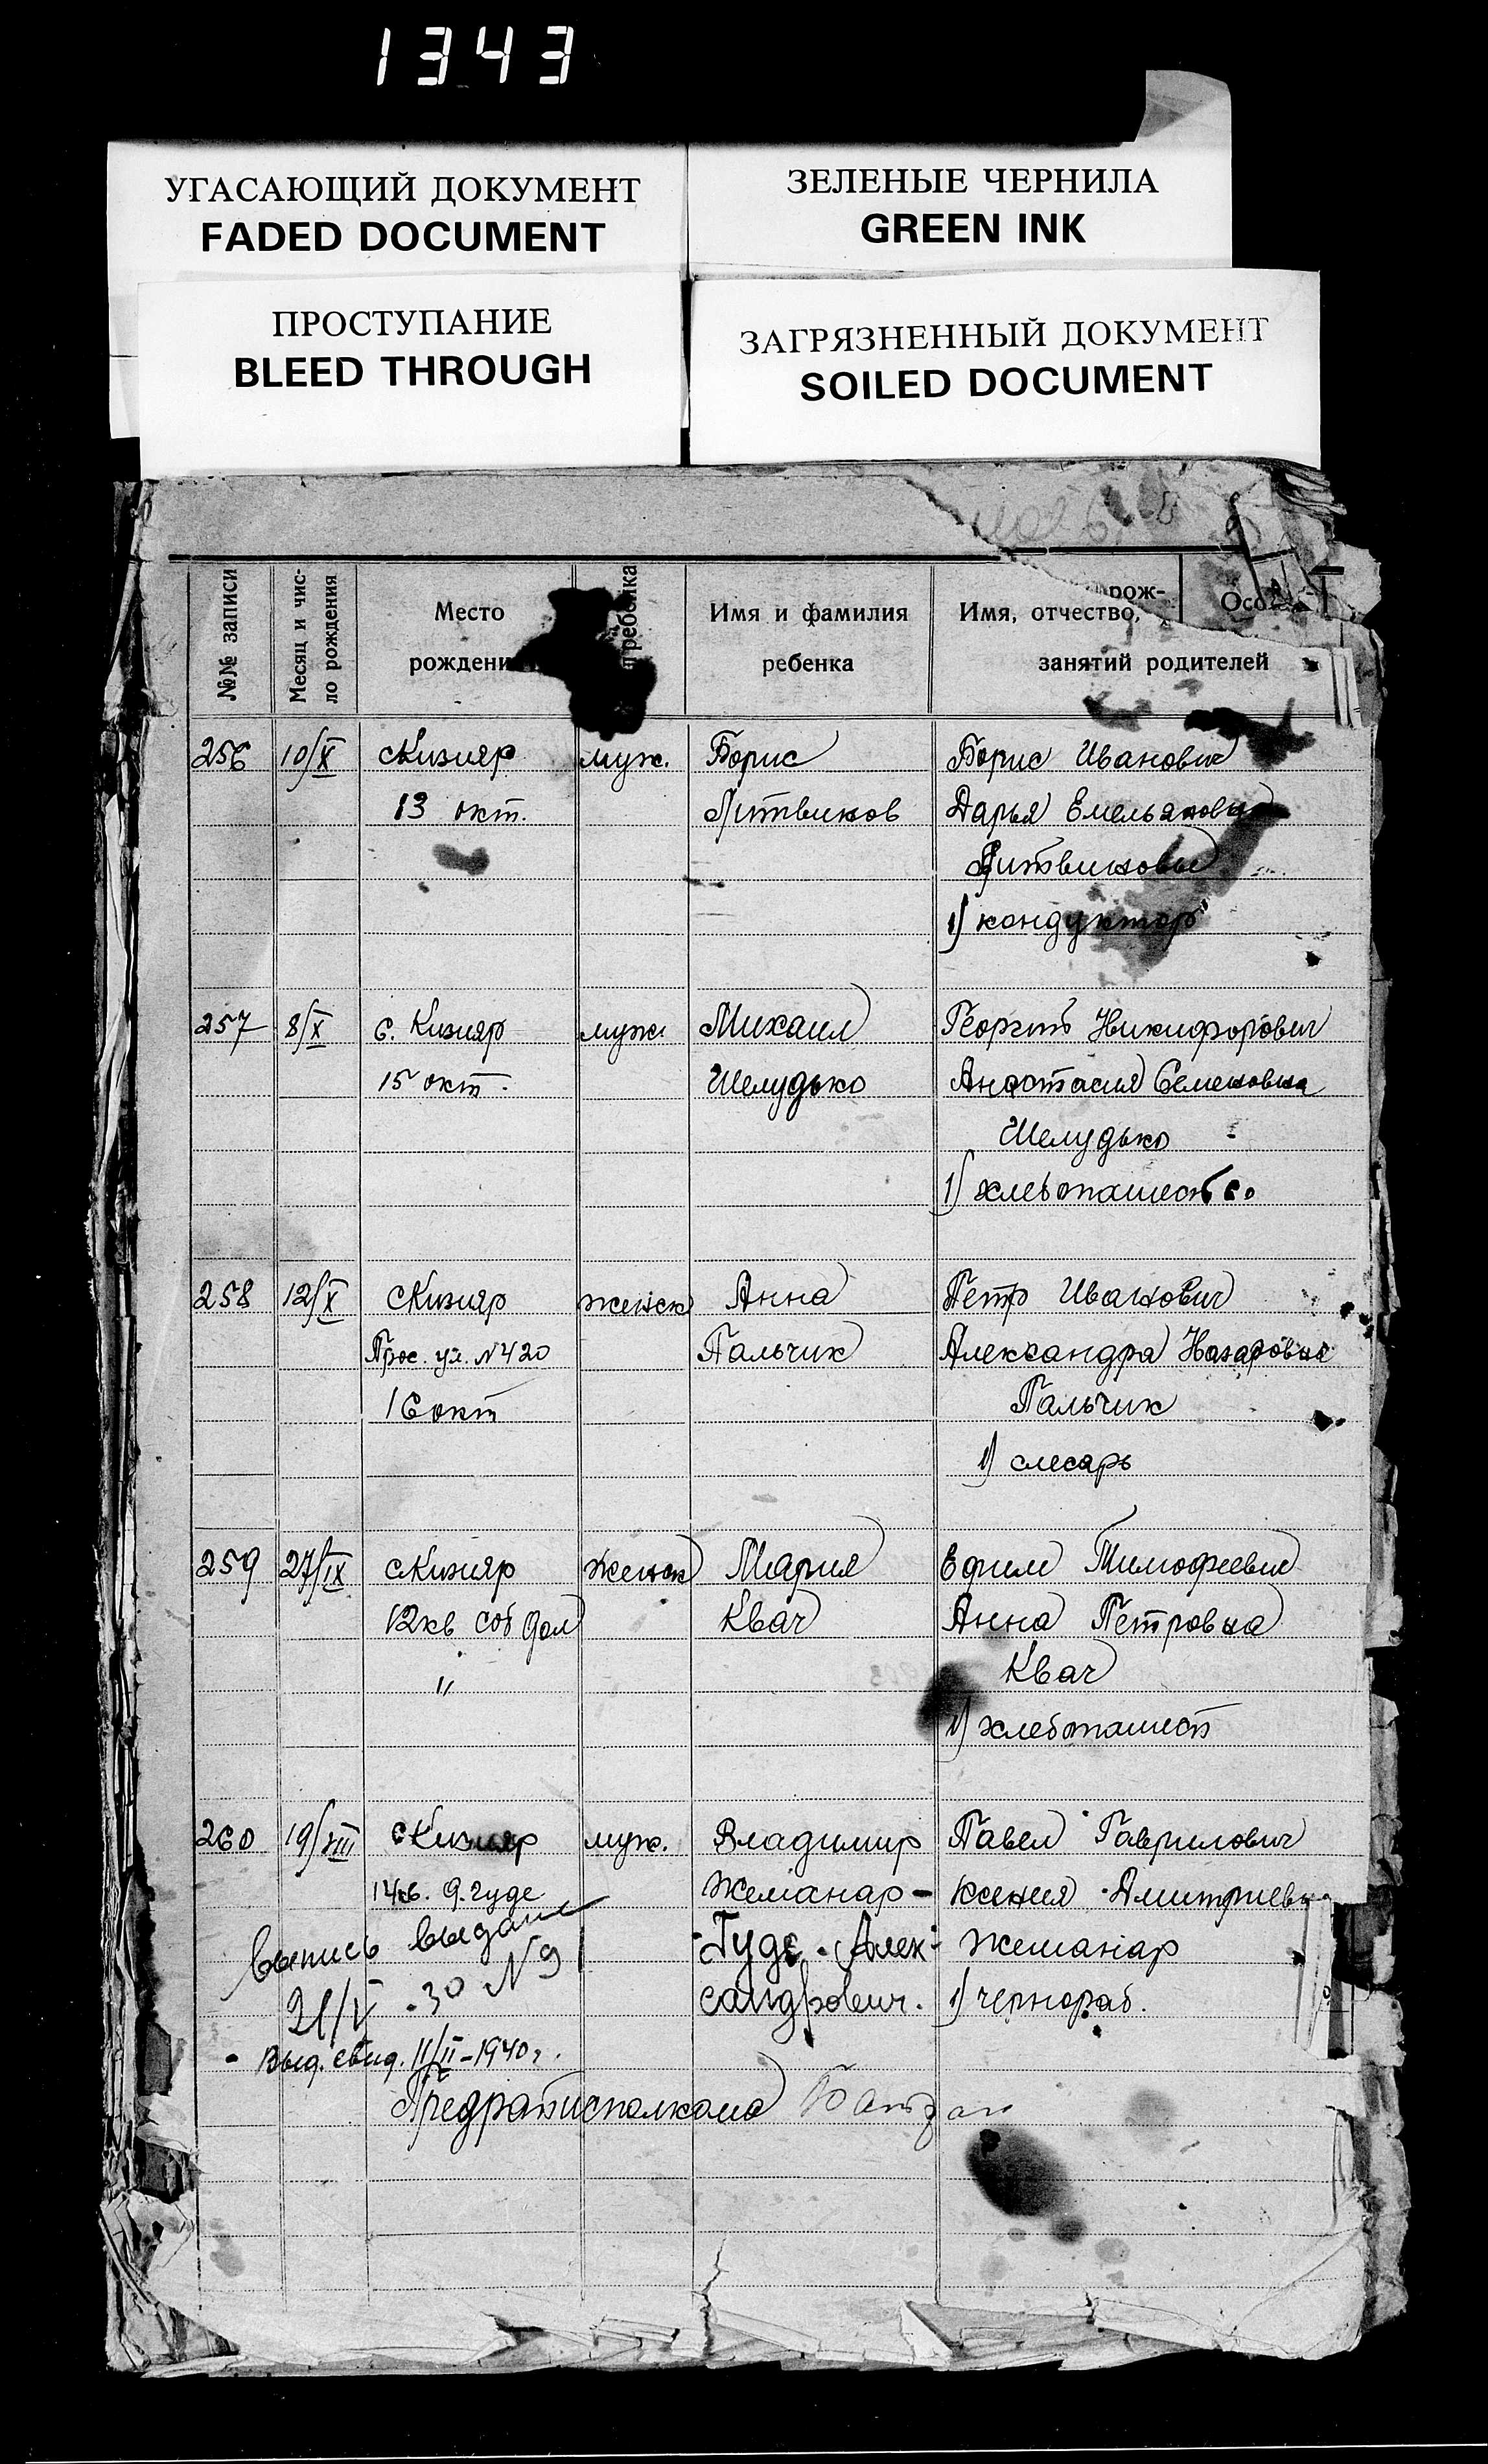 1343
УГАСАЮЩИЙ ДОКУМЕНТ
FADED DOCUMENT
ЗЕЛЕНЫЕ ЧЕРНИЛА
GREEN INK
ПРОСТУПАНИЕ
BLEED THROUGH
ЗАГРЯЗНЕННЫЙ ДОКУМЕНТ
SOILED DOCUMENT
№№ записи
Месяц и чис-
ло рождения
Место
рождени
ребенка
Имя и фамилия
ребенка
рож-
Имя, отчество,
занятий родителей
256 10/X с Кизияр муж. Борис Борис Иванович
13 окт. Литвинов Дарья Емельяновна
Литвиновы
1) кондуктор
257 8/X с. Кизияр муж. Михаил Георгий Никифорович
15 окт. Шелудько Анастасия Семеновна
Шелудько
1) хлебопашест
258 12/X с Кизияр женск Анна Петр Иванович
Прос. ул. N420 Пальчик Александра Назаровна
16 окт Пальчик
1) слесарь
259 27/IX с Кизияр женск Мария Ефим Тимофеевич
12кв соб дом Квач Анна Петровна
" Квач
1) хлебопашест
260 19/VIII с Кизияр муж. Владимир Павел Гаврилович
14кв. д. Гуде Жеманар- Ксения Дмитриевн
выпись выдана -Гуде. Алек- Жеманар
21/V -30 N9 сандрович. 1) чернораб.
Выд. свид. 11/II-1940г.